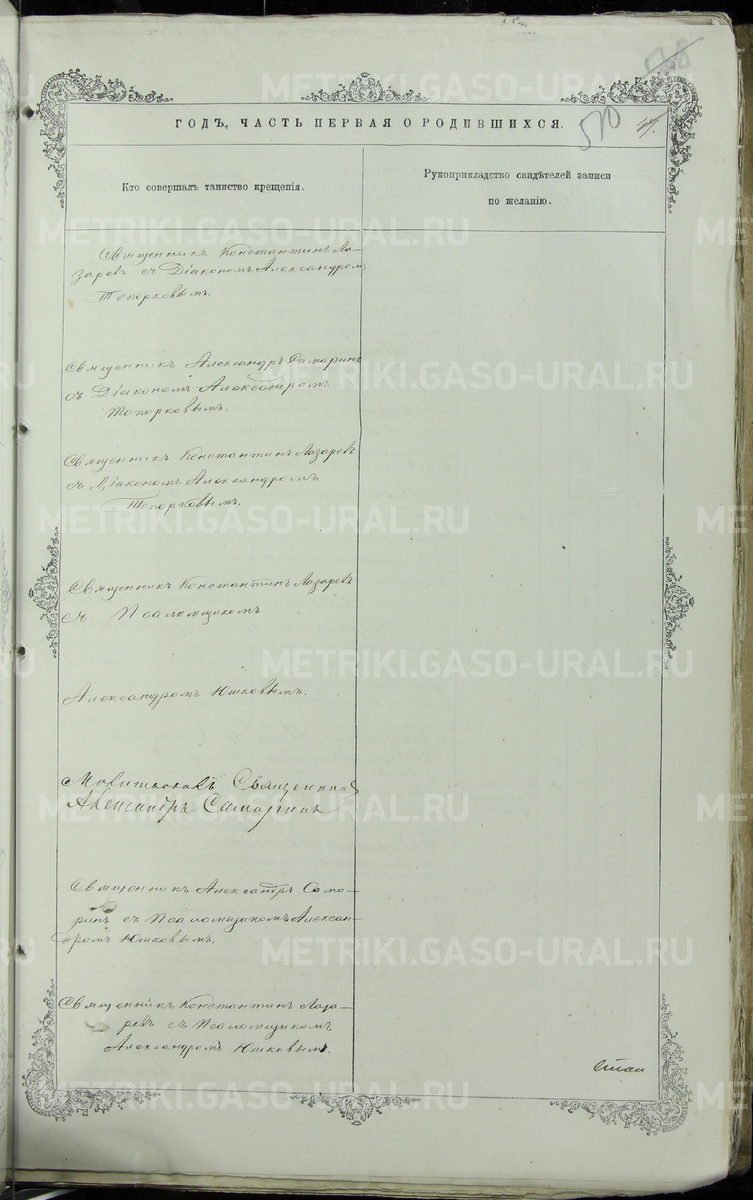 ГОДЪ, ЧАСТЬ ПЕРВАЯ О РОДИВШИХСЯ.
510
Кто совершалъ таинство крещенія.
Рукоприкладство свидѣтелей записи
по желанію.
Священникъ Константинъ Ла-
заревъ съ Діакономъ Александромъ
Топорковымъ.
Священникъ Александръ Самаринъ
съ Діакономъ Александромъ
Топорковымъ.
Священникъ Константинъ Лазаревъ
съ Діакономъ Александромъ
Топорковымъ.
Священникъ Константинъ Лазаревъ
съ Псаломщикомъ
Александромъ Юшковымъ.
Молитвовалъ Священникъ
Александръ Самаринъ
Священникъ Александръ Сама-
ринъ съ Псаломщикомъ Алексан-
дромъ Юшковымъ.
Священникъ Константинъ Лаза-
ревъ съ Псаломщикомъ
Александромъ Юшковымъ.
METRIKI.GASO-URAL.RU